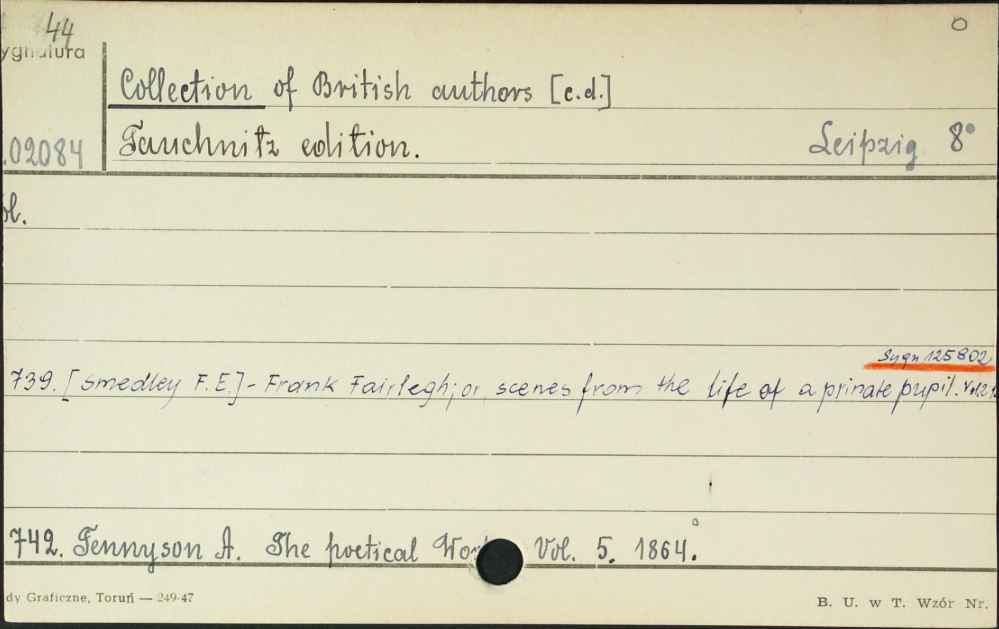 44
O
ygnatura
Collection of British authors [c.d.]
.02084 Tauchnitz edition. Leipzig 8°
ol.
Sygn 125802
739. [Smedley F. E.] - Frank Fairlegh; or scenes from the life of a private pupil.
742. Tennyson A. The poetical Wor Vol. 5. 1864.
dy Graficzne, Toruń — 249-47
B. U. w T. Wzór Nr.